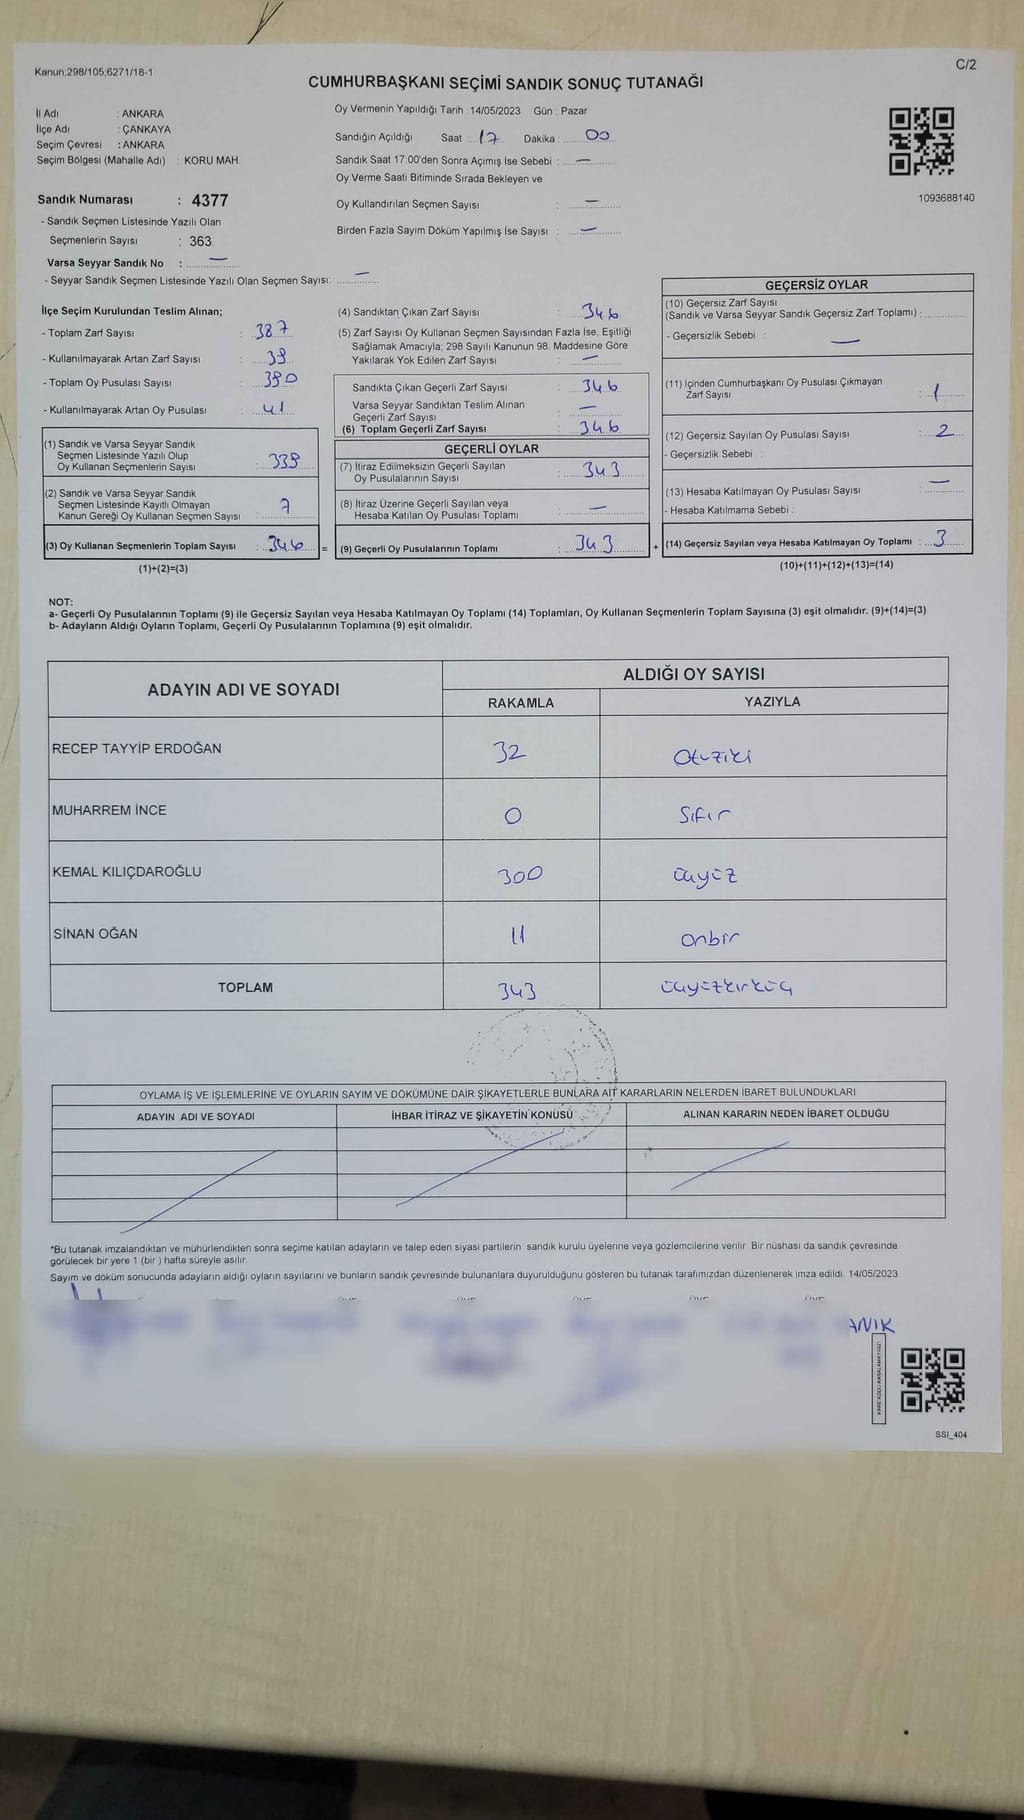 Kanun;298/105;6271/18-1
C/2
CUMHURBAŞKANI SEÇİMİ SANDIK SONUÇ TUTANAĞI
İl Adı : ANKARA
İlçe Adı : ÇANKAYA
Seçim Çevresi : ANKARA
Seçim Bölgesi (Mahalle Adı) : KORU MAH.
Oy Vermenin Yapıldığı Tarih : 14/05/2023 Gün : Pazar
Sandığın Açıldığı Saat : 17 Dakika : 00
Sandık Saat 17:00'den Sonra Açımış İse Sebebi : —
Oy Verme Saati Bitiminde Sırada Bekleyen ve
Oy Kullandırılan Seçmen Sayısı : —
Birden Fazla Sayım Döküm Yapılmış İse Sayısı : —
1093688140
Sandık Numarası : 4377
- Sandık Seçmen Listesinde Yazılı Olan
Seçmenlerin Sayısı : 363
Varsa Seyyar Sandık No : —
- Seyyar Sandık Seçmen Listesinde Yazılı Olan Seçmen Sayısı: —
İlçe Seçim Kurulundan Teslim Alınan;
- Toplam Zarf Sayısı : 387
- Kullanılmayarak Artan Zarf Sayısı : 39
- Toplam Oy Pusulası Sayısı : 390
- Kullanılmayarak Artan Oy Pusulası : 41
(1) Sandık ve Varsa Seyyar Sandık
Seçmen Listesinde Yazılı Olup
Oy Kullanan Seçmenlerin Sayısı : 339
(2) Sandık ve Varsa Seyyar Sandık
Seçmen Listesinde Kayıtlı Olmayan
Kanun Gereği Oy Kullanan Seçmen Sayısı : 7
(3) Oy Kullanan Seçmenlerin Toplam Sayısı : 346 =
(1)+(2)=(3)
(4) Sandıktan Çıkan Zarf Sayısı : 346
(5) Zarf Sayısı Oy Kullanan Seçmen Sayısından Fazla İse, Eşitliği
Sağlamak Amacıyla; 298 Sayılı Kanunun 98. Maddesine Göre
Yakılarak Yok Edilen Zarf Sayısı : —
Sandıkta Çıkan Geçerli Zarf Sayısı : 346
Varsa Seyyar Sandıktan Teslim Alınan
Geçerli Zarf Sayısı : —
(6) Toplam Geçerli Zarf Sayısı : 346
GEÇERLİ OYLAR
(7) İtiraz Edilmeksizin Geçerli Sayılan
Oy Pusulalarının Sayısı : 343
(8) İtiraz Üzerine Geçerli Sayılan veya
Hesaba Katılan Oy Pusulası Toplamı : —
(9) Geçerli Oy Pusulalarının Toplamı : 343 +
GEÇERSİZ OYLAR
(10) Geçersiz Zarf Sayısı
(Sandık ve Varsa Seyyar Sandık Geçersiz Zarf Toplamı) :
- Geçersizlik Sebebi : —
(11) İçinden Cumhurbaşkanı Oy Pusulası Çıkmayan
Zarf Sayısı : 1
(12) Geçersiz Sayılan Oy Pusulası Sayısı : 2
- Geçersizlik Sebebi :
(13) Hesaba Katılmayan Oy Pusulası Sayısı : —
- Hesaba Katılmama Sebebi :
(14) Geçersiz Sayılan veya Hesaba Katılmayan Oy Toplamı : 3
(10)+(11)+(12)+(13)=(14)
NOT:
a- Geçerli Oy Pusulalarının Toplamı (9) ile Geçersiz Sayılan veya Hesaba Katılmayan Oy Toplamı (14) Toplamları, Oy Kullanan Seçmenlerin Toplam Sayısına (3) eşit olmalıdır. (9)+(14)=(3)
b- Adayların Aldığı Oyların Toplamı, Geçerli Oy Pusulalarının Toplamına (9) eşit olmalıdır.
ADAYIN ADI VE SOYADI
ALDIĞI OY SAYISI
RAKAMLA YAZIYLA
RECEP TAYYİP ERDOĞAN 32 Otuziki
MUHARREM İNCE 0 Sıfır
KEMAL KILIÇDAROĞLU 300 üçyüz
SİNAN OĞAN 11 onbir
TOPLAM 343 üçyüzkırküç
OYLAMA İŞ VE İŞLEMLERİNE VE OYLARIN SAYIM VE DÖKÜMÜNE DAİR ŞİKAYETLERLE BUNLARA AİT KARARLARIN NELERDEN İBARET BULUNDUKLARI
ADAYIN ADI VE SOYADI İHBAR İTİRAZ VE ŞİKAYETİN KONUSU ALINAN KARARIN NEDEN İBARET OLDUĞU
*Bu tutanak imzalandıktan ve mühürlendikten sonra seçime katılan adayların ve talep eden siyasi partilerin sandık kurulu üyelerine veya gözlemcilerine verilir. Bir nüshası da sandık çevresinde
görülecek bir yere 1 (bir ) hafta süreyle asılır.
Sayım ve döküm sonucunda adayların aldığı oyların sayılarını ve bunların sandık çevresinde bulunanlara duyurulduğunu gösteren bu tutanak tarafımızdan düzenlenerek imza edildi. 14/05/2023
ANIK
SSI_404